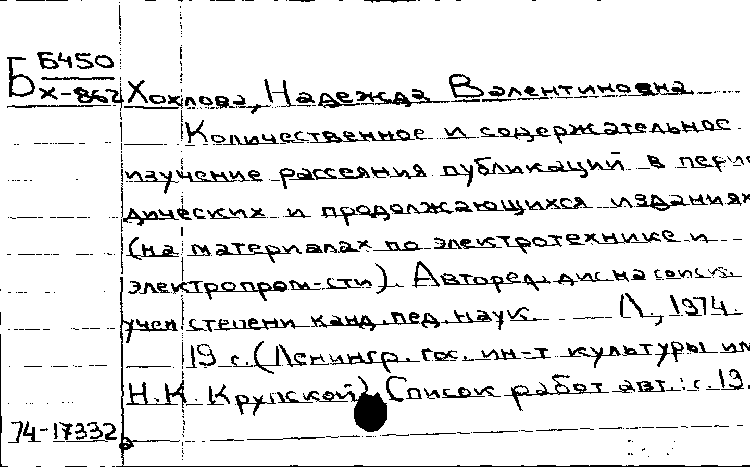 Б Б450
Х-862 Хохлова, Надежда Валентиновна
Количественное и содержательное
изучение рассеяния публикаций в перио
дических и продолжающихся изданиях
(на материалах по электротехнике и
электропром-сти). Автореф. дис на соиск.
учен степени канд. пед. наук. Л, 1974.
19 с. (Ленингр. гос. ин-т культуры им
Н.К. Крупской) Список работ авт.: с. 19.
74-17332